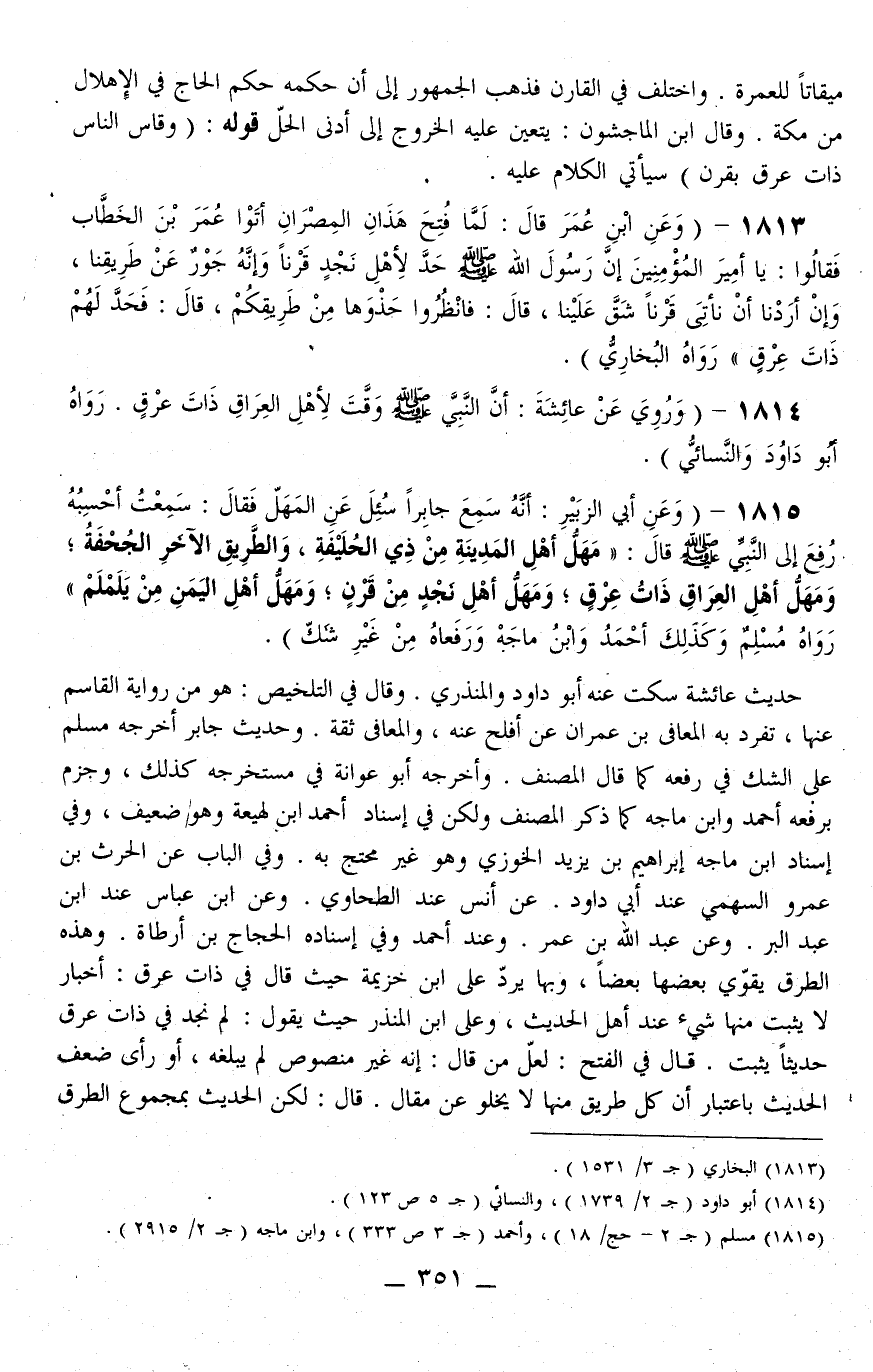 ميقاتاً للعمرة . واختلف في القارن فذهب الجمهور إلى أن حكمه حكم الحاج في الإهلال
من مكة . وقال ابن الماجشون : يتعين عليه الخروج إلى أدنى الحلّ قوله : ( وقاس الناس
ذات عرق بقرن ) سيأتي الكلام عليه .
١٨١٣ – ( وَعَنِ ابْنِ عُمَرَ قالَ : لَمَّا فُتِحَ هَذَانِ المِصْرَانِ أتَوْا عُمَرَ بْنَ الخَطَّاب
فَقالُوا : يا أمِيرَ المُؤْمِنِينَ إنَّ رَسُولَ الله ﷺ حَدَّ لِأهْلِ نَجْدٍ قَرْناً وَإنَّهُ جَوْرٌ عَنْ طَرِيقِنا ،
وَإنْ أرَدْنا أنْ نأتِىَ قَرْناً شَقَّ عَلَيْنا ، قالَ : فانْظُرُوا حَذْوَها مِنْ طَرِيقِكُمْ ، قالَ : فَحَدَّ لَهُمْ
ذَاتَ عِرْقٍ » رَوَاهُ البُخارِيُّ ) .
١٨١٤ – ( وَرُوِيَ عَنْ عائِشَةَ : أنَّ النَّبِيَّ ﷺ وَقَّتَ لِأهْلِ العِرَاقِ ذَاتَ عرْقٍ . رَوَاهُ
أبُو دَاوُدَ وَالنَّسائيُّ ) .
١٨١٥ – ( وَعَنِ أبي الزبَيْرِ : أنَّهُ سَمِعَ جابِراً سُئِلَ عَنِ المَهَلّ فَقالَ : سَمِعْتُ أحْسِبُهُ
رُفِعَ إلى النَّبِيِّ ﷺ قالَ : « مَهَلُّ أهْلِ المَدِينَةِ مِنْ ذِي الحُلَيْفَةِ ، وَالطَّرِيقِ الآخَرِ الجُحْفَةُ ؛
وَمَهَلُّ أهْلِ العِرَاقِ ذَاتُ عِرْقٍ ؛ وَمَهَلُّ أهْلِ نَجْدٍ مِنْ قَرْنٍ ؛ وَمَهَلُّ أهْلِ اليَمَنِ مِنْ يَلَمْلَمْ »
رَوَاهُ مُسْلِمٌ وَكَذَلِكَ أحْمَدُ وَابْنُ ماجَهْ وَرَفَعاهُ مِنْ غَيْرِ شَكّ ) .
حديث عائشة سكت عنه أبو داود والمنذري . وقال في التلخيص : هو من رواية القاسم
عنها ، تفرد به المعافى بن عمران عن أفلح عنه ، والمعافى ثقة . وحديث جابر أخرجه مسلم
على الشك في رفعه كما قال المصنف . وأخرجه أبو عوانة في مستخرجه كذلك ، وجزم
برفعه أحمد وابن ماجه كما ذكر المصنف ولكن في إسناد أحمد ابن لهيعة وهو ضعيف ، وفي
إسناد ابن ماجه إبراهيم بن يزيد الخوزي وهو غير محتج به . وفي الباب عن الحرث بن
عمرو السهمي عند أبي داود . عن أنس عند الطحاوي . وعن ابن عباس عند ابن
عبد البر . وعن عبد الله بن عمر . وعند أحمد وفي إسناده الحجاج بن أرطاة . وهذه
الطرق يقوّي بعضها بعضاً ، وبها يردّ على ابن خزيمة حيث قال في ذات عرق : أخبار
لا يثبت منها شيء عند أهل الحديث ، وعلى ابن المنذر حيث يقول : لم نجد في ذات عرق
حديثاً يثبت . قال في الفتح : لعلّ من قال : إنه غير منصوص لم يبلغه ، أو رأى ضعف
الحديث باعتبار أن كل طريق منها لا يخلو عن مقال . قال : لكن الحديث بمجموع الطرق
(١٨١٣) البخاري ( جـ ٣/ ١٥٣١ ) .
(١٨١٤) أبو داود ( جـ ٢/ ١٧٣٩ ) ، والنسائي ( جـ ٥ ص ١٢٣ ) .
(١٨١٥) مسلم ( جـ ٢ – حج/ ١٨ ) ، وأحمد ( جـ ٣ ص ٣٣٣ ) ، وابن ماجه ( جـ ٢/ ٢٩١٥ ) .
— ٣٥١ —